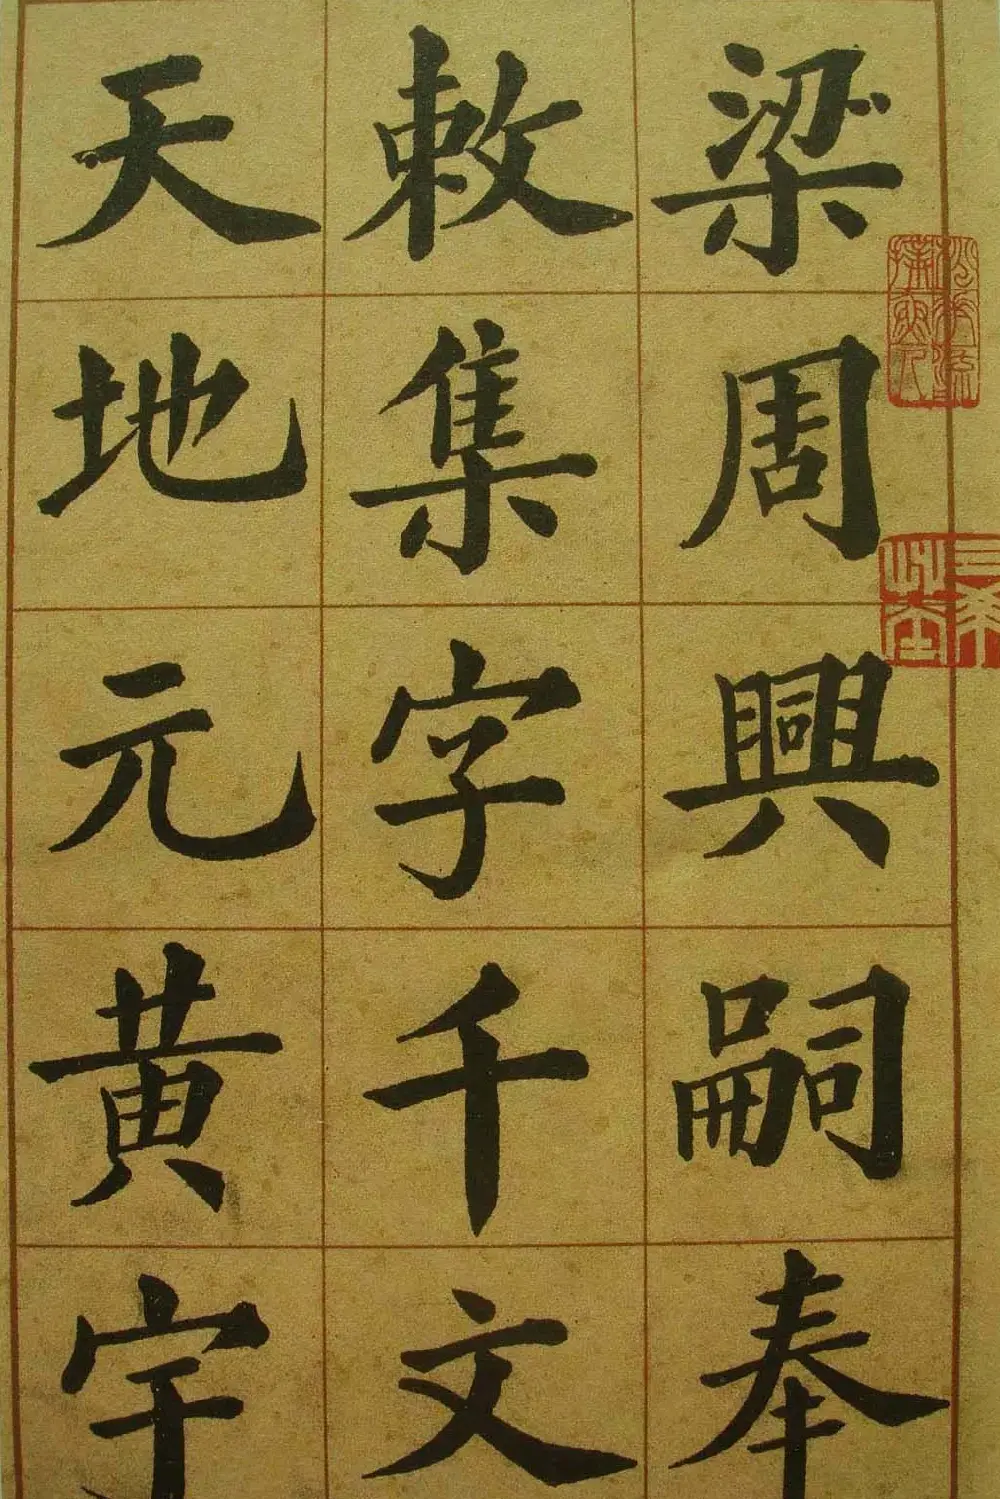 梁周興嗣奉
敕集字千文
天地元黄宇